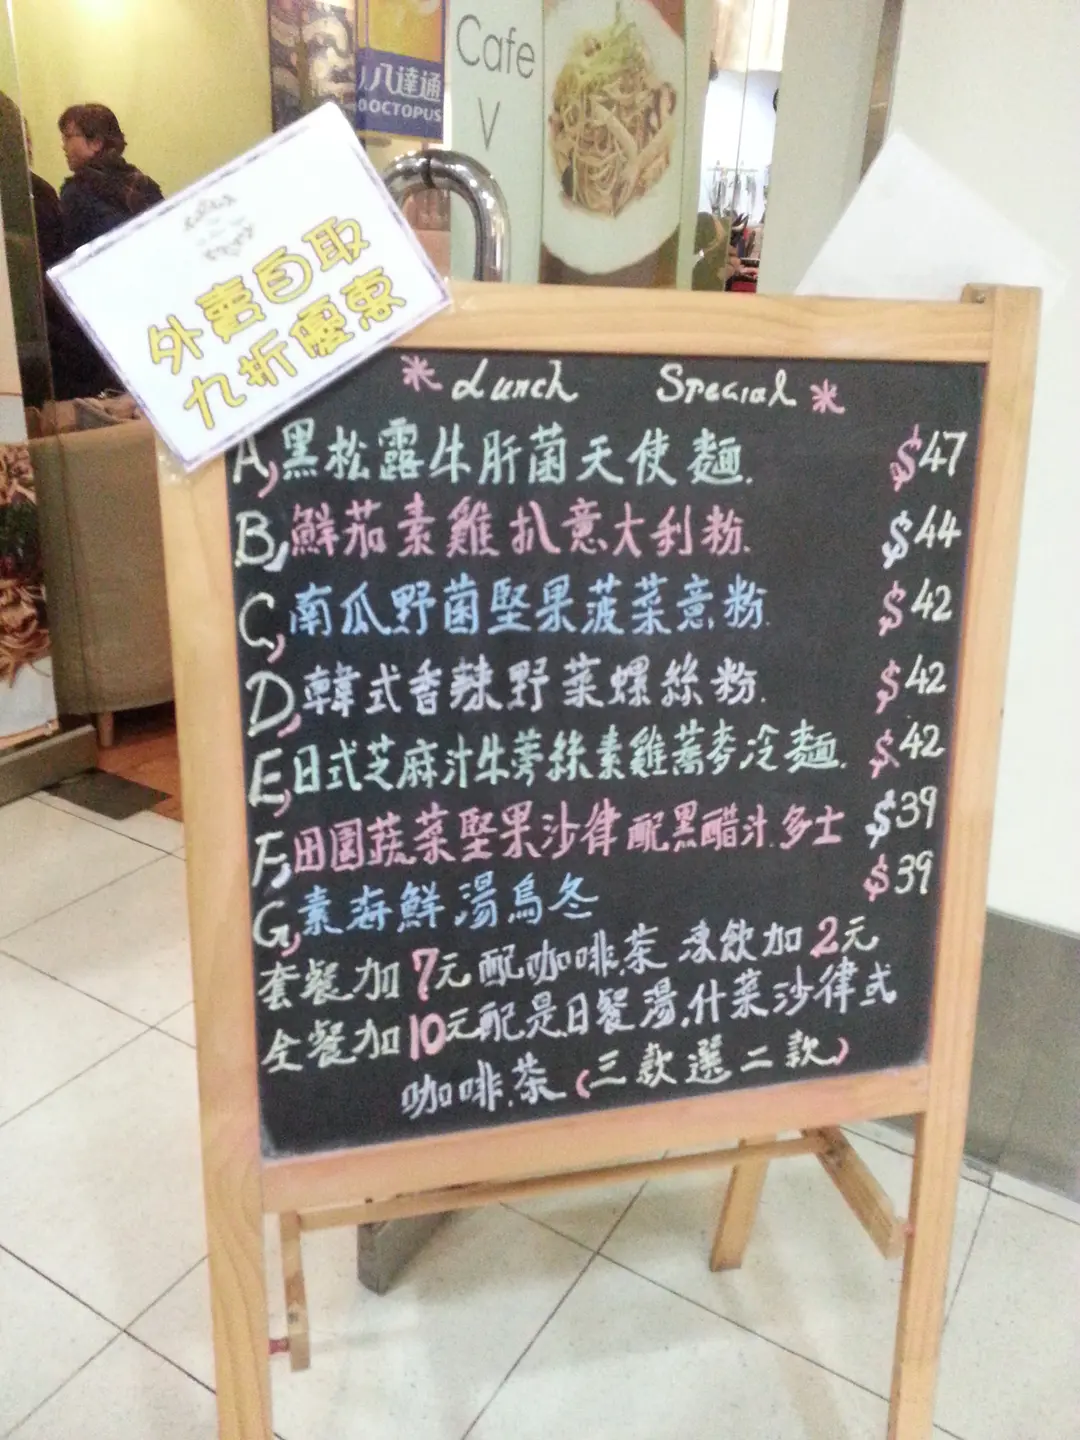 Cafe
V
八達通
OCTOPUS
外賣自取
九折優惠
* Lunch Special *
A, 黑松露牛肝菌天使麵. $47
B, 鮮茄素雞扒意大利粉. $44
C, 南瓜野菌堅果菠菜意粉. $42
D, 韓式香辣野菜螺絲粉. $42
E, 日式芝麻汁牛蒡絲素雞蕎麥冷麵. $42
F, 田園蔬菜堅果沙律配黑醋汁.多士 $39
G, 素海鮮湯烏冬 $39
套餐加7元配咖啡.茶 凍飲加2元
全餐加10元配是日餐湯.什菜沙律或
咖啡.茶(三款選二款)